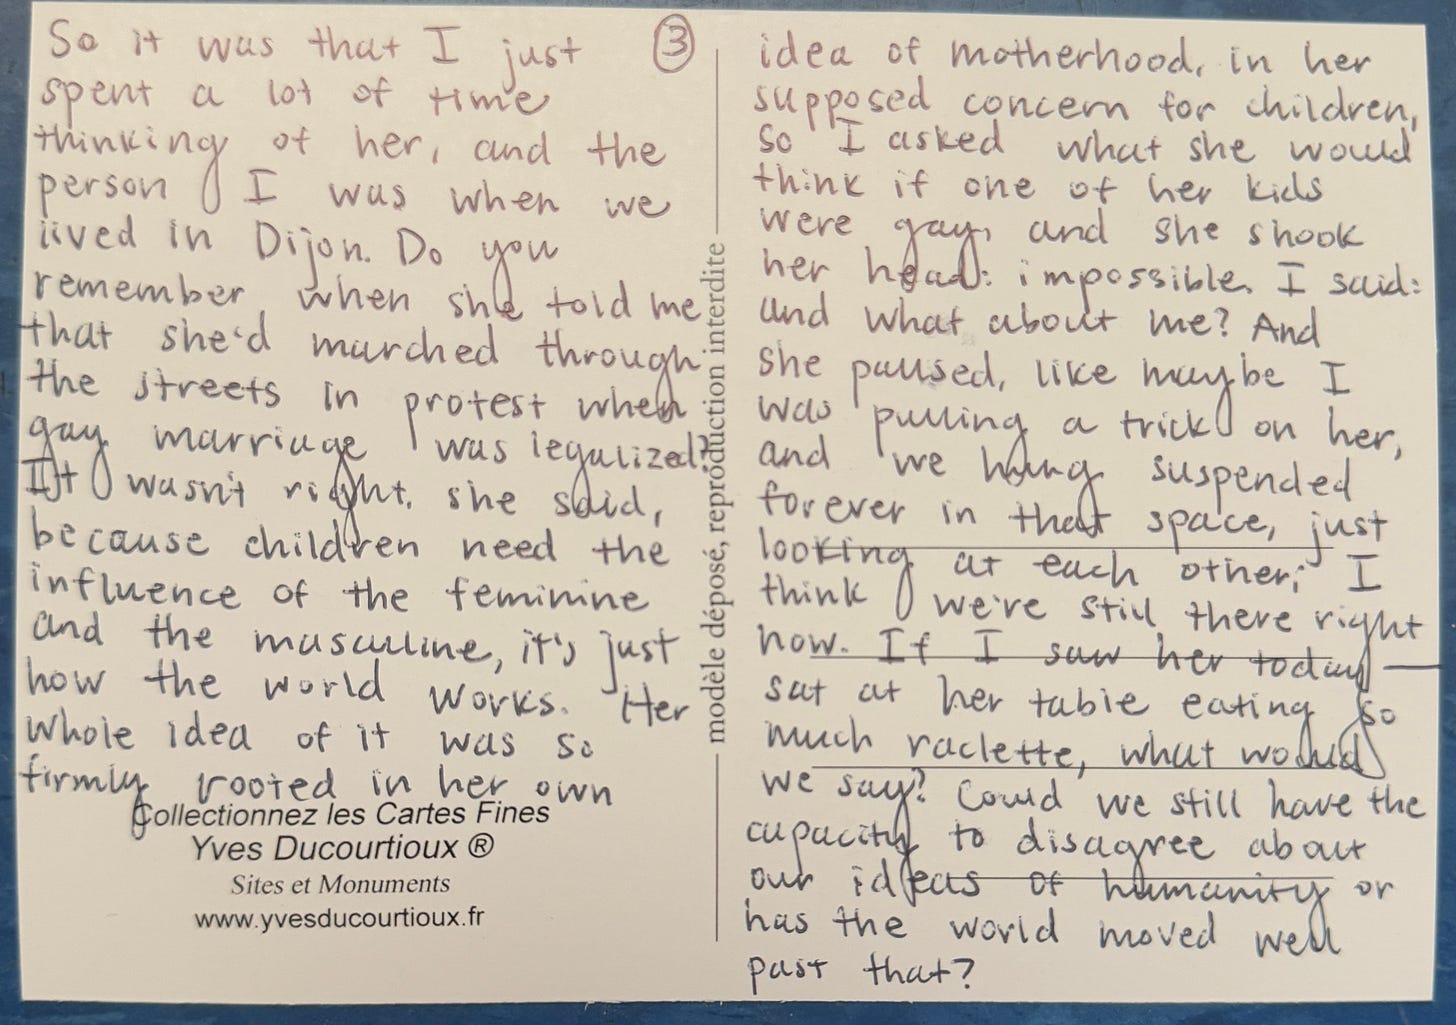 So it was that I just
③
spent a lot of time
thinking of her, and the
person I was when we
lived in Dijon. Do you
remember when she told me
that she'd marched through
the streets in protest when
gay marriage was legalized?
It wasn't right, she said,
because children need the
influence of the feminine
and the masculine, it's just
how the world works. Her
whole idea of it was so
firmly rooted in her own
Collectionnez les Cartes Fines
Yves Ducourtioux ®
Sites et Monuments
www.yvesducourtioux.fr
modèle déposé, reproduction interdite
idea of motherhood, in her
supposed concern for children,
so I asked what she would
think if one of her kids
were gay, and she shook
her head: impossible. I said:
and what about me? And
she paused, like maybe I
was pulling a trick on her,
and we hung suspended
forever in that space, just
looking at each other; I
think we're still there right
now. If I saw her today —
sat at her table eating so
much raclette, what would
we say? Could we still have the
capacity to disagree about
our ideas of humanity or
has the world moved well
past that?